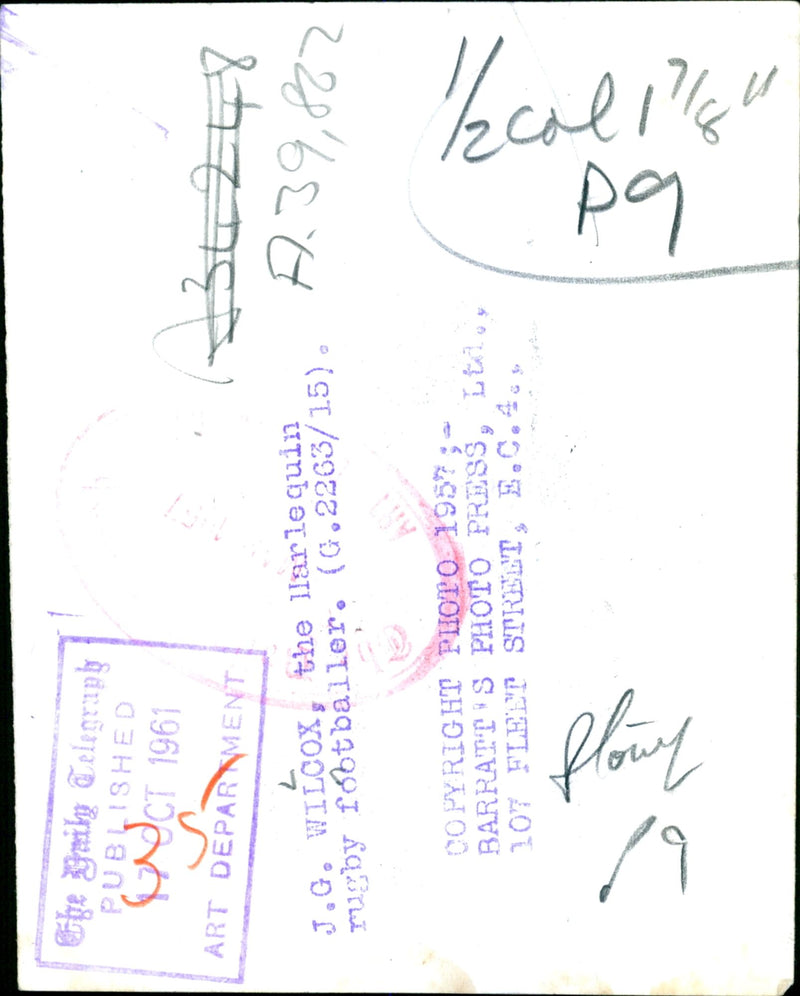 A34248
A.39,882
1/2 col 1 7/8"
P9
J.G. WILCOX, the Harlequin
rugby footballer. (G.2263/15).
COPYRIGHT PHOTO 1957;-
BARRATT'S PHOTO PRESS, Ltd.,
107 FLEET STREET, E.C.4.,
The Daily Telegraph
PUBLISHED
17 OCT 1961
ART DEPARTMENT
35
ART